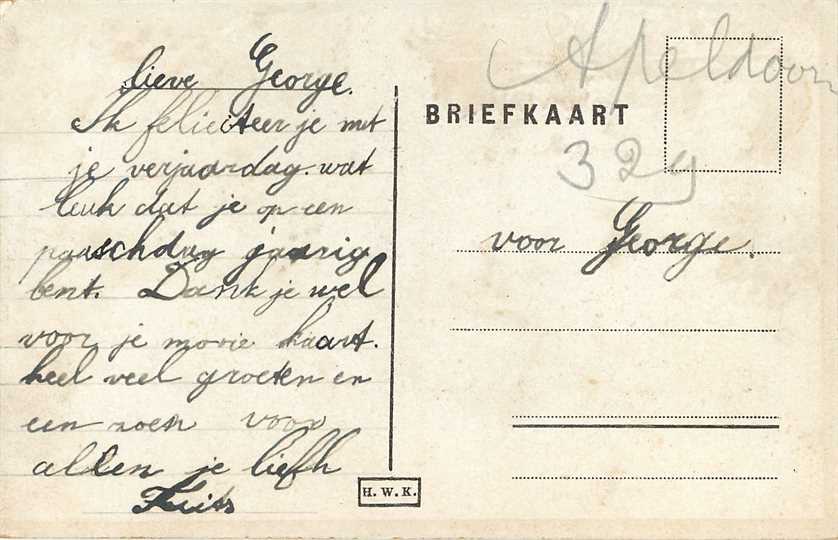 lieve George.
Ik feliciteer je met
je verjaardag. wat
leuk dat je op een
paaschdag jaarig
bent. Dank je wel
voor je mooie kaart.
heel veel groeten en
een zoen voor
allen je liefh
Frits
Apeldoorn
BRIEFKAART
329
voor George.
H. W. K.